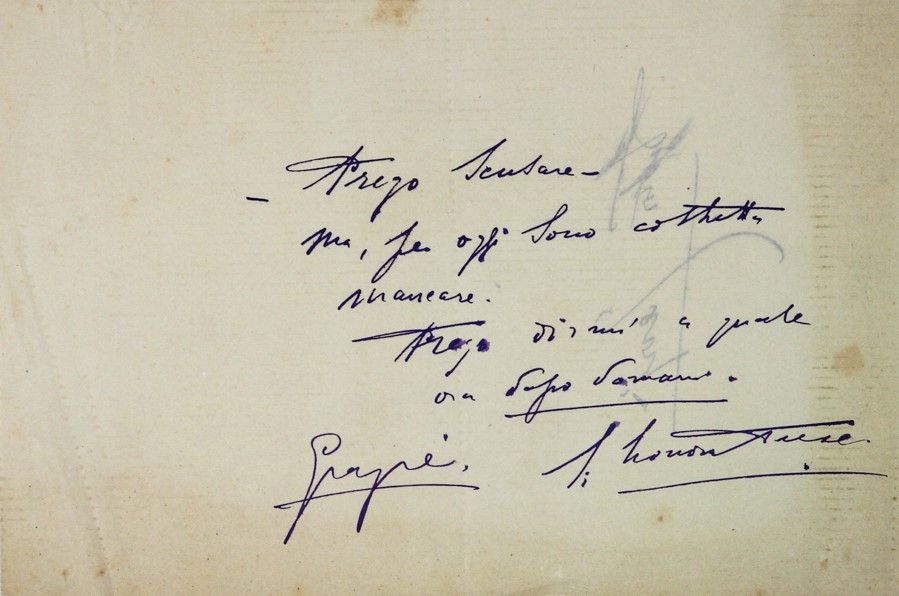 - Prego Scusare -
ma, per oggi sono costretta
mancare.
Prego dirmi a quale
ora dopo domani.
Grazie.